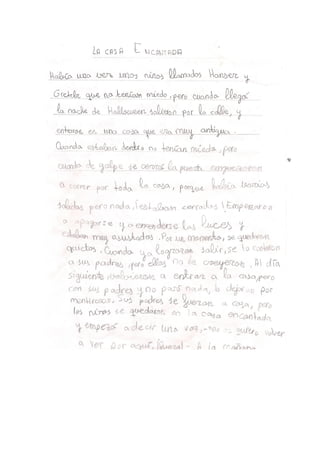 LA CASA ENCANTADA
Había una vez unos niños llamados Hansen y
Gretele que no tenían miedo, pero cuando llegó
la noche de Halloween salieron por la calle, y
entraron en una casa que era muy antigua.
Cuando estaban dentro no tenían miedo, pero
cuando de golpe se cerró la puerta empezaron
a correr por toda la casa, porque había varias
salidas pero nada, ¡estaban cerradas! Empezaron
a apagarse y a encenderse las luces y
estaban muy asustados. Por un momento, se quedaron
quietos. Cuando ya lograron salir, se lo contaron
a sus padres, pero ellos no le creyeron. Al día
siguiente volvieron a entrar a la casa pero
con sus padres y no pasó nada, lo dejaron por
mentirosos. Sus padres se fueron a casa, pero
los niños se quedaron en la casa encantada
y empezó a decir una voz, -no os quiero volver
a ver por aquí, - A la mañana